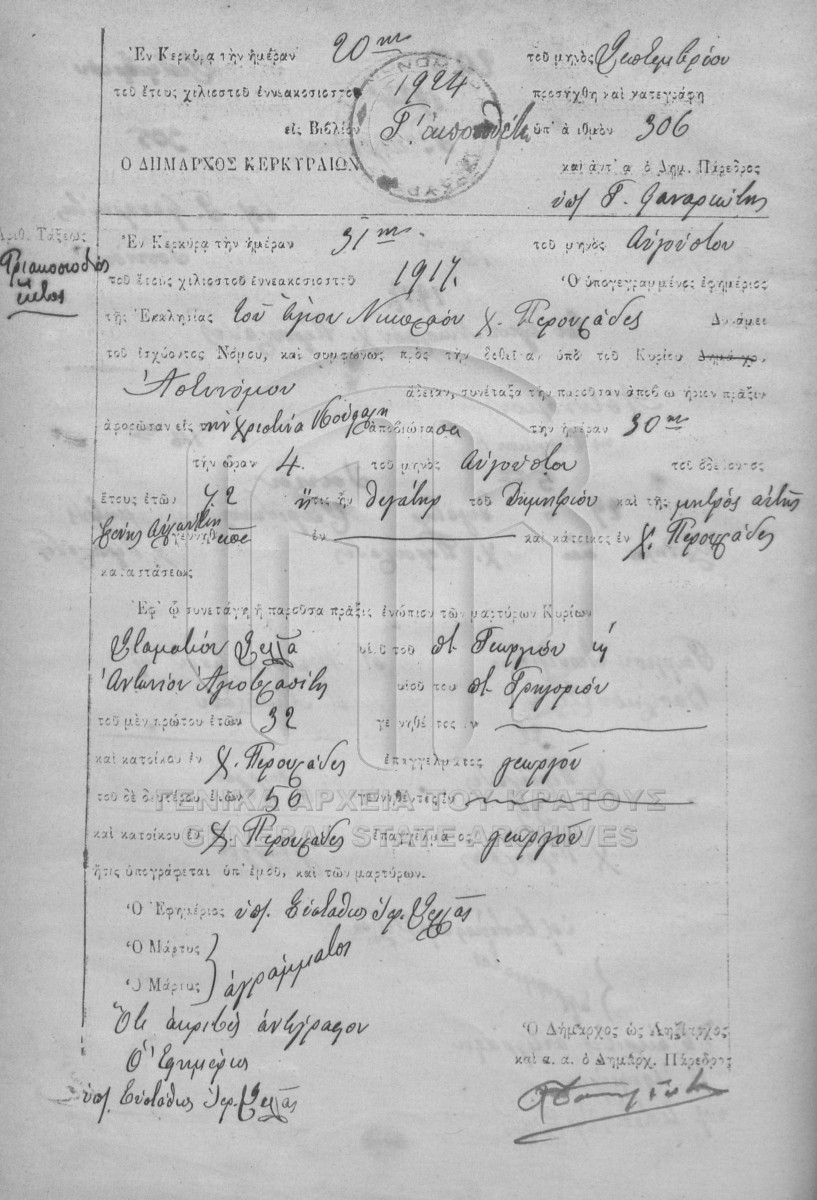 Ἐν Κερκύρᾳ τὴν ἡμέραν 20ην τοῦ μηνὸς Σεπτεμβρίου
τοῦ ἔτους χιλιοστοῦ ἐννεακοσιοστοῦ 1924 προσήχθη καὶ κατεγράφη
εἰς Βιβλίον Γ' ὑπ' ἀριθμὸν 306
Ο ΔΗΜΑΡΧΟΣ ΚΕΡΚΥΡΑΙΩΝ καὶ ἀντ' α. ὁ Δημ. Πάρεδρος
ὑπ/ Γ. Φαναριώτης
Ἀριθ. Τάξεως
Τριακοσιοστὸς
ἕκτος
Ἐν Κερκύρᾳ τὴν ἡμέραν 31ην τοῦ μηνὸς Αὐγούστου
τοῦ ἔτους χιλιοστοῦ ἐννεακοσιοστοῦ 1917. Ὁ ὑπογεγραμμένος ἐφημέριος
τῆς Ἐκκλησίας τοῦ Ἁγίου Νικολάου χ. Περουλάδες Δυνάμει
τοῦ ἰσχύοντος Νόμου, καὶ συμφώνως πρὸς τὴν δοθεῖσαν ὑπὸ τοῦ Κυρίου Δημάρχου
Ἀστυνόμου ἄδειαν, συνέταξα τὴν παροῦσαν ἀποβιωτήριον πρᾶξιν
ἀφορῶσαν εἰς τὴν Χριστίνα ἀποβιώσασα τὴν ἡμέραν 30ην
τὴν ὥραν 4. τοῦ μηνὸς Αὐγούστου τοῦ ὁδεύοντος
ἔτους ἐτῶν 42 ἥτις ἦν θυγάτηρ τοῦ Δημητρίου καὶ τῆς μητρός αὐτῆς
γεννηθεῖσα ἐν καὶ κάτοικος ἐν χ. Περουλάδες
καταστάσεως
Ἐφ' ᾧ συνετάγη ἡ παροῦσα πρᾶξις ἐνώπιον τῶν μαρτύρων Κυρίων
Σταματίου Βελλᾶ υἱοῦ τοῦ π. Γεωργίου ἢ
Ἀντωνίου υἱοῦ του π. Γρηγορίου
τοῦ μὲν πρώτου ἐτῶν 32 γεννηθέντος ἐν
καὶ κατοίκου ἐν χ. Περουλάδες ἐπαγγέλματος γεωργοῦ
τοῦ δὲ δευτέρου ἐτῶν 56 γεννηθέντος ἐν
ΓΕΝΙΚΑ ΑΡΧΕΙΑ ΤΟΥ ΚΡΑΤΟΥΣ
GENERAL STATE ARCHIVES
καὶ κατοίκου ἐν χ. Περουλάδες ἐπαγγέλματος γεωργοῦ
ἥτις ὑπογράφεται ὑπ' ἐμοῦ, καὶ τῶν μαρτύρων.
Ὁ Ἐφημέριος ὑπ/ Εὐστάθιος Ἱερ. Βελλᾶς
Ὁ Μάρτυς
Ὁ Μάρτυς ἀγράμματοι
Ὅτι ἀκριβὲς ἀντίγραφον
Ὁ Ἐφημέριος
ὑπ/ Εὐστάθιος Ἱερ. Βελλᾶς
Ὁ Δήμαρχος ὡς Ληξίαρχος
καὶ α. α. ὁ Δημαρχ. Πάρεδρος